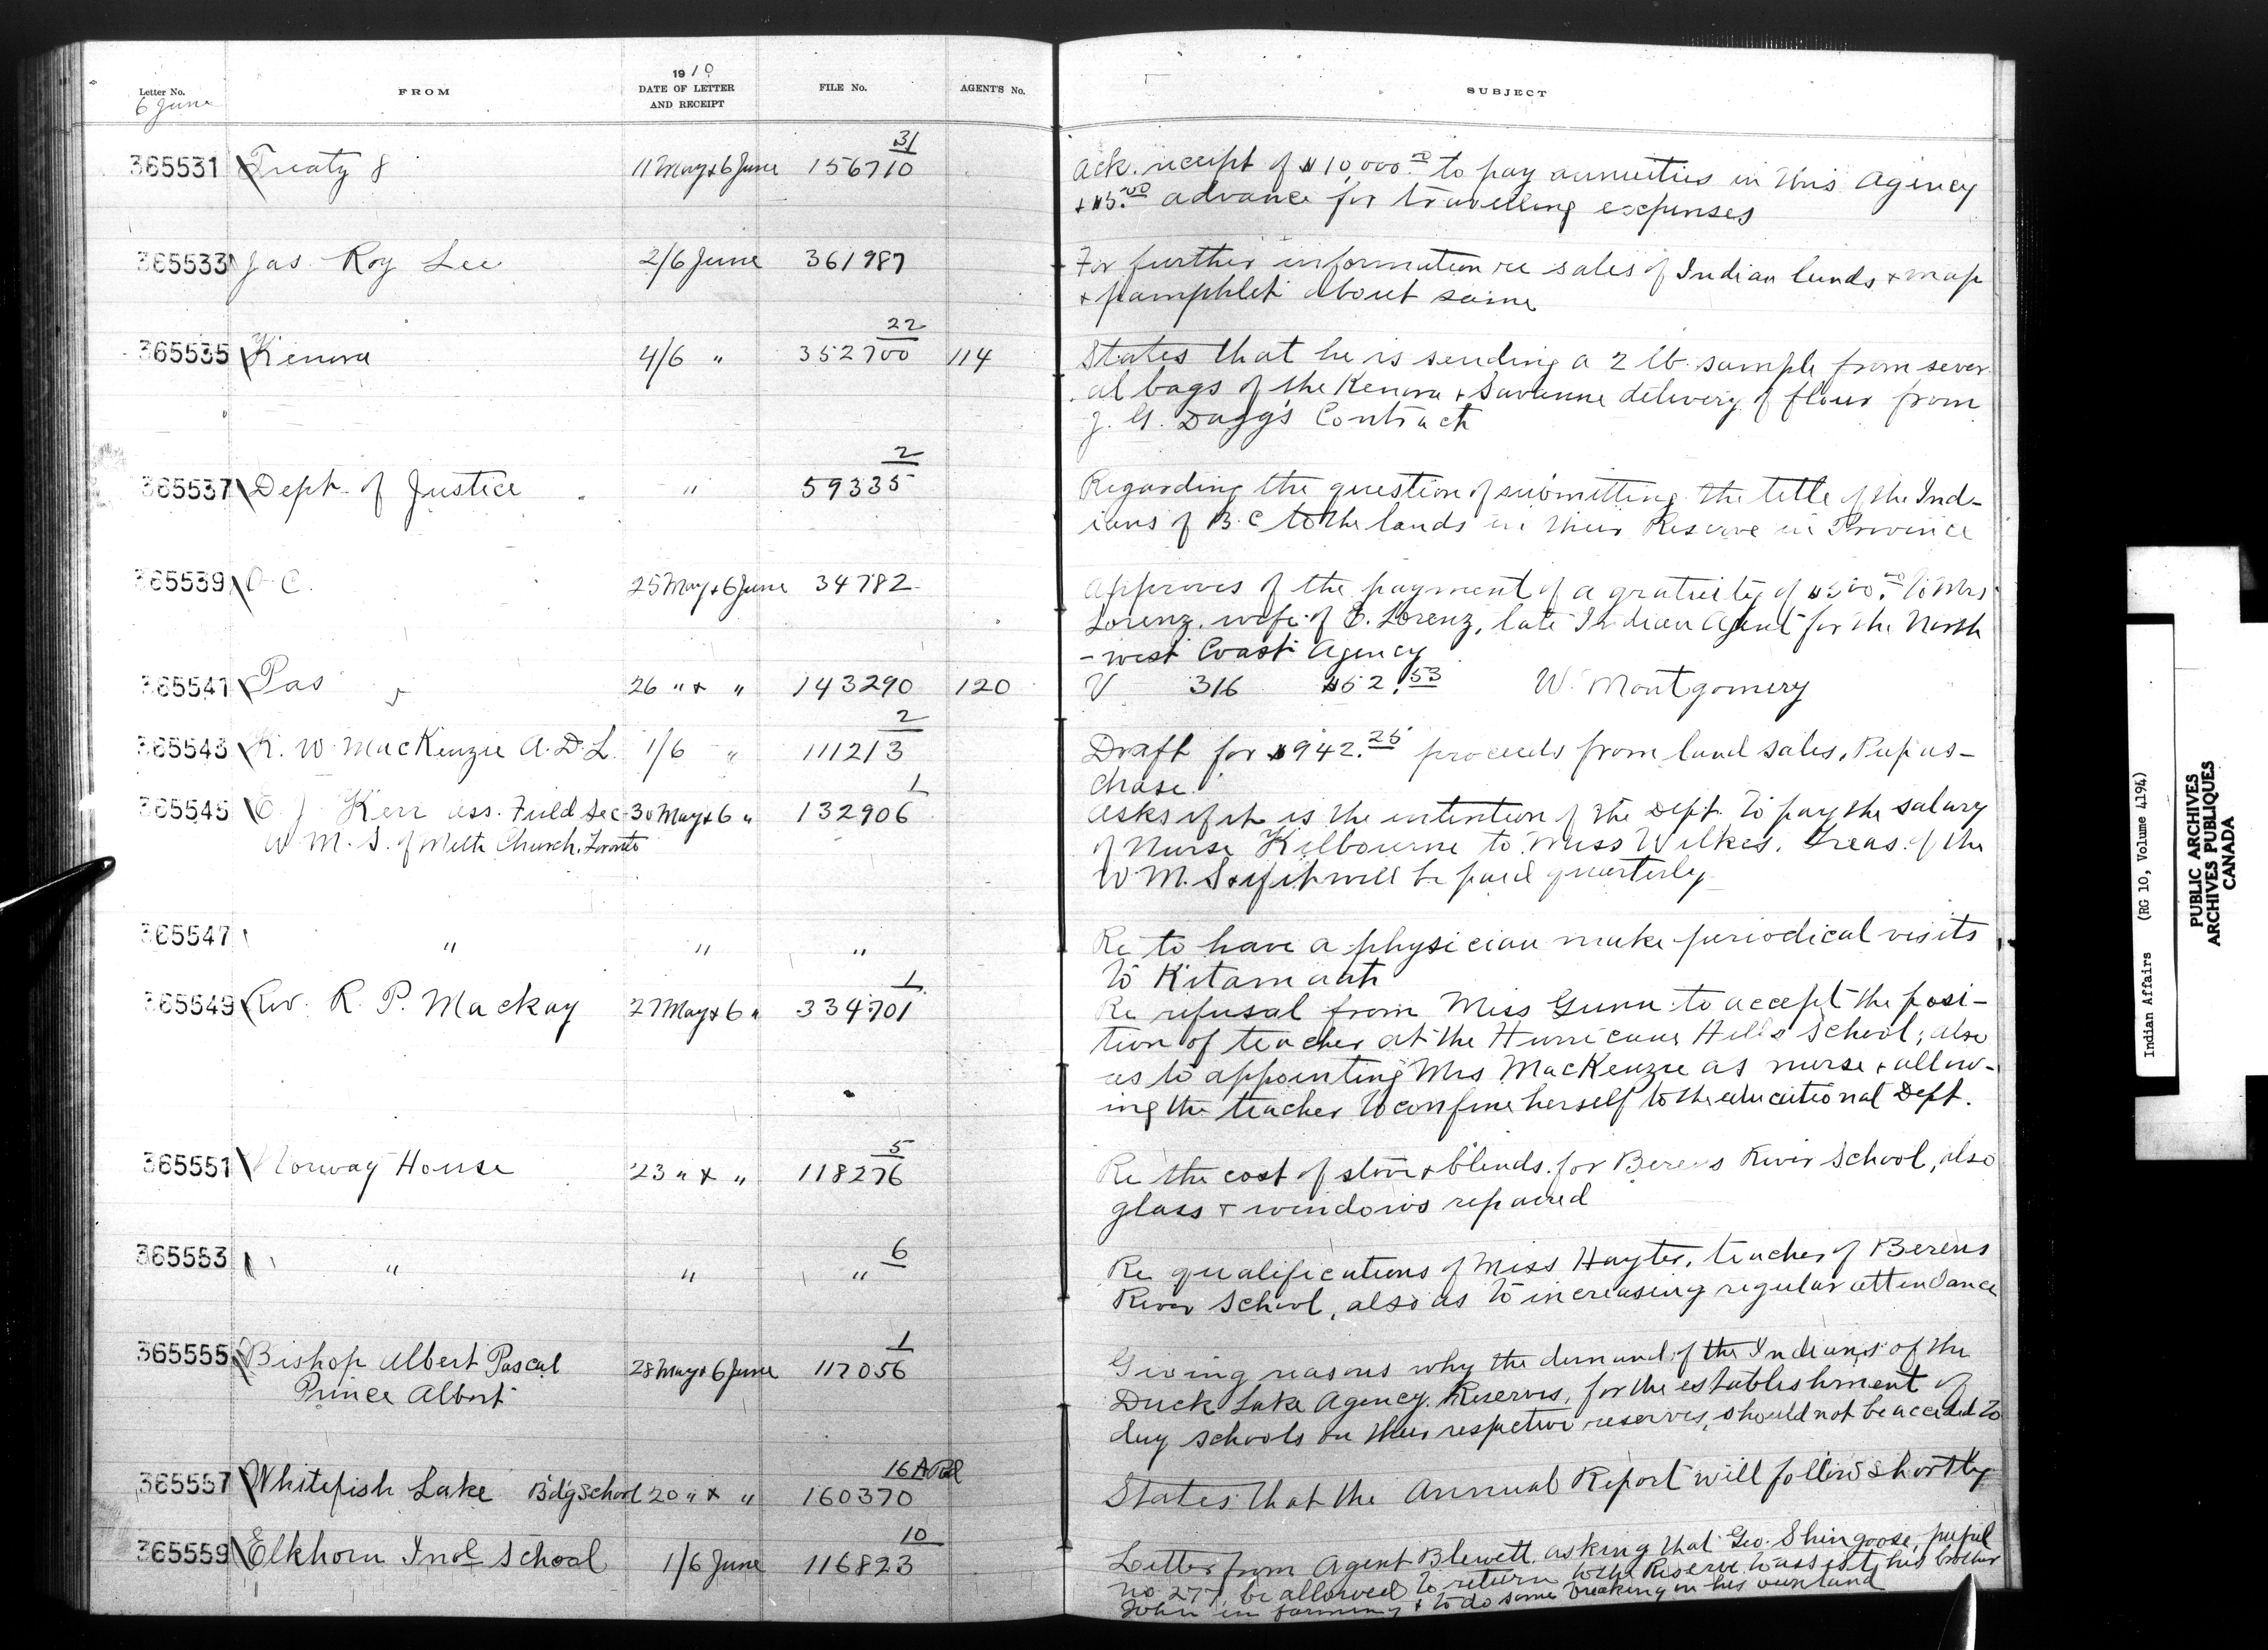 Letter No.
6 June
FROM
1910
DATE OF LETTER
AND RECEIPT
FILE No.
AGENT'S No.
SUBJECT
31
365531 Treaty 8 11 May & 6 June 156710
Ack. receipt of $10,000.00 to pay annuities in this Agency
advance for travelling expenses
365533 Jas. Roy Lee 2/6 June 361987
For further information re sales of Indian lands & map
& pamphlet about same
22
365535 Kenora 4/6 " 352700 114
States that he is sending a 2 lb. sample from sever-
al bags of the Kenora & Savanne delivery of flour from
J. G. Dagg's Contract
2
365537 Dept. of Justice " 59335
Regarding the question of submitting the title of the Ind-
ians of B.C to the lands in their Reserve in Province
365539 O. C. 25 May & 6 June 34782
Approves of the payment of a gratuity of $500.00 to Mrs
Lorenz, wife of E. Lorenz, late Indian Agent for the North
-west Coast Agency
365541 Pas 26 " & " 143290 120
V 316 $52.53 W. Montgomery
2
365543 K. W. MacKenzie A.D.L. 1/6 " 111213
Draft for $942.25 proceeds from land sales, Pupus-
chase.
1
365545 E. J. Kerr ass. Field Sec- 30 May & 6 " 132906
W. M. S. of Meth Church, Toronto
Asks if it is the intention of the Dept. to pay the salary
of Nurse Kilbourne to Miss Wilkes, Treas. of the
W.M.S & if it will be paid quarterly
365547 " " "
Re to have a physician make periodical visits
to Kitamaat
1
365549 Rev. R. P. Mackay 27 May & 6 " 334701
Re refusal from Miss Gunn to accept the posi-
tion of teacher at the Hurricane Hills School; also
as to appointing Mrs MacKenzie as nurse & allow-
ing the teacher to confine herself to the educational Dept.
5
365551 Norway House 23 " & " 118276
Re the cost of stove & blinds for Berens River School, also
glass & windows repaired
6
365553 " " "
Re qualifications of Miss Hayter, teacher of Berens
River School, also as to increasing regular attendance
1
365555 Bishop Albert Pascal 28 May & 6 June 117056
Prince Albert
Giving reasons why the demand of the Indians of the
Duck Lake Agency Reserves, for the establishment of
day schools on their respective reserves, should not be acceded to
16
365557 Whitefish Lake Bdg School 20 " & " 160370
States that the Annual Report will follow shortly
10
365559 Elkhorn Ind School 1/6 June 116823
Letter from Agent Blewett asking that Geo. Shingoose, pupil
no 277, be allowed to return to the Reserve to assist his brother
John in farming & to do some breaking on his own land
Indian Affairs (RG 10, Volume 4194)
PUBLIC ARCHIVES
ARCHIVES PUBLIQUES
CANADA